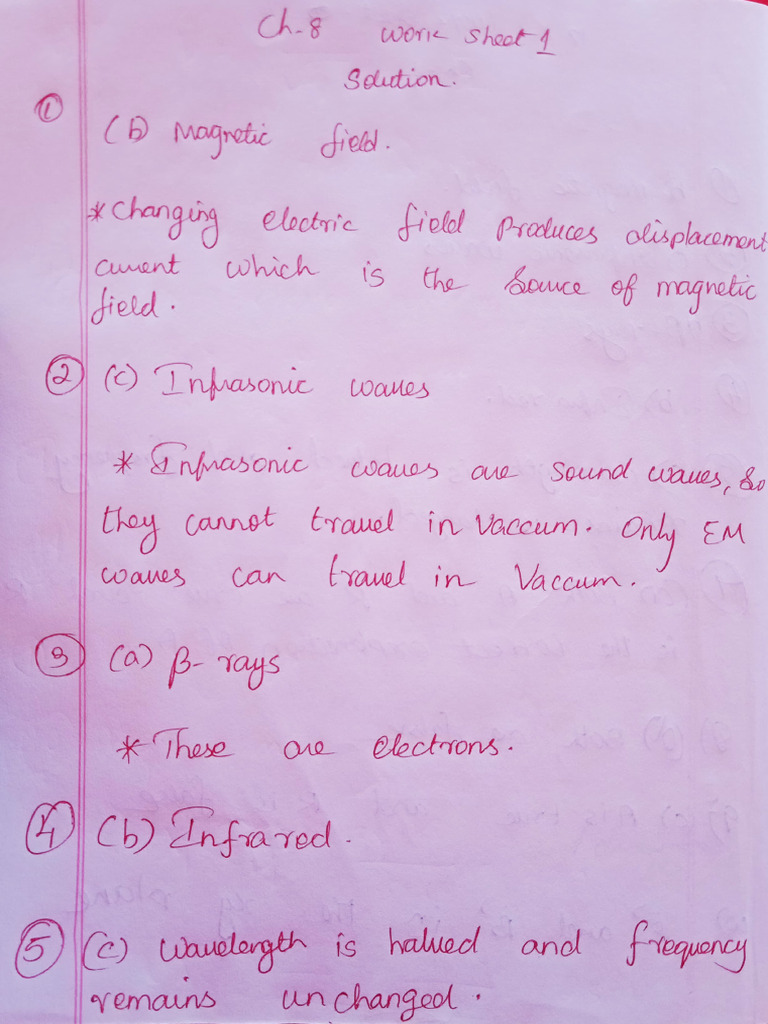 Ch-8 Work Sheet 1
Solution.
① (b) Magnetic field.
* Changing electric field produces displacement
current which is the source of magnetic
field.
② (c) Infrasonic waves
* Infrasonic waves are sound waves, so
they cannot travel in Vaccum. Only EM
waves can travel in Vaccum.
③ (a) β-rays
* These are electrons.
④ (b) Infrared.
⑤ (c) Wavelength is halved and frequency
remains unchanged.